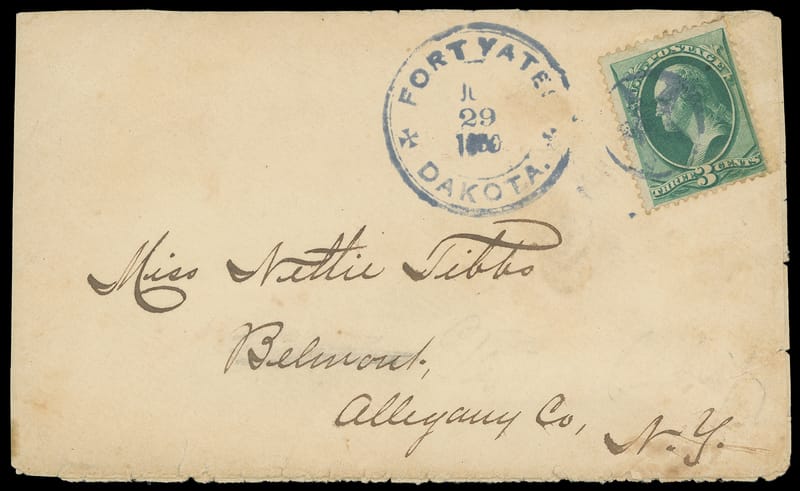 FORT YATE
29
DAKOTA.
U.S. POSTAGE
THREE 3 CENTS
Miss Nettie Tibbs
Belmont,
Allegany Co,
N.Y.